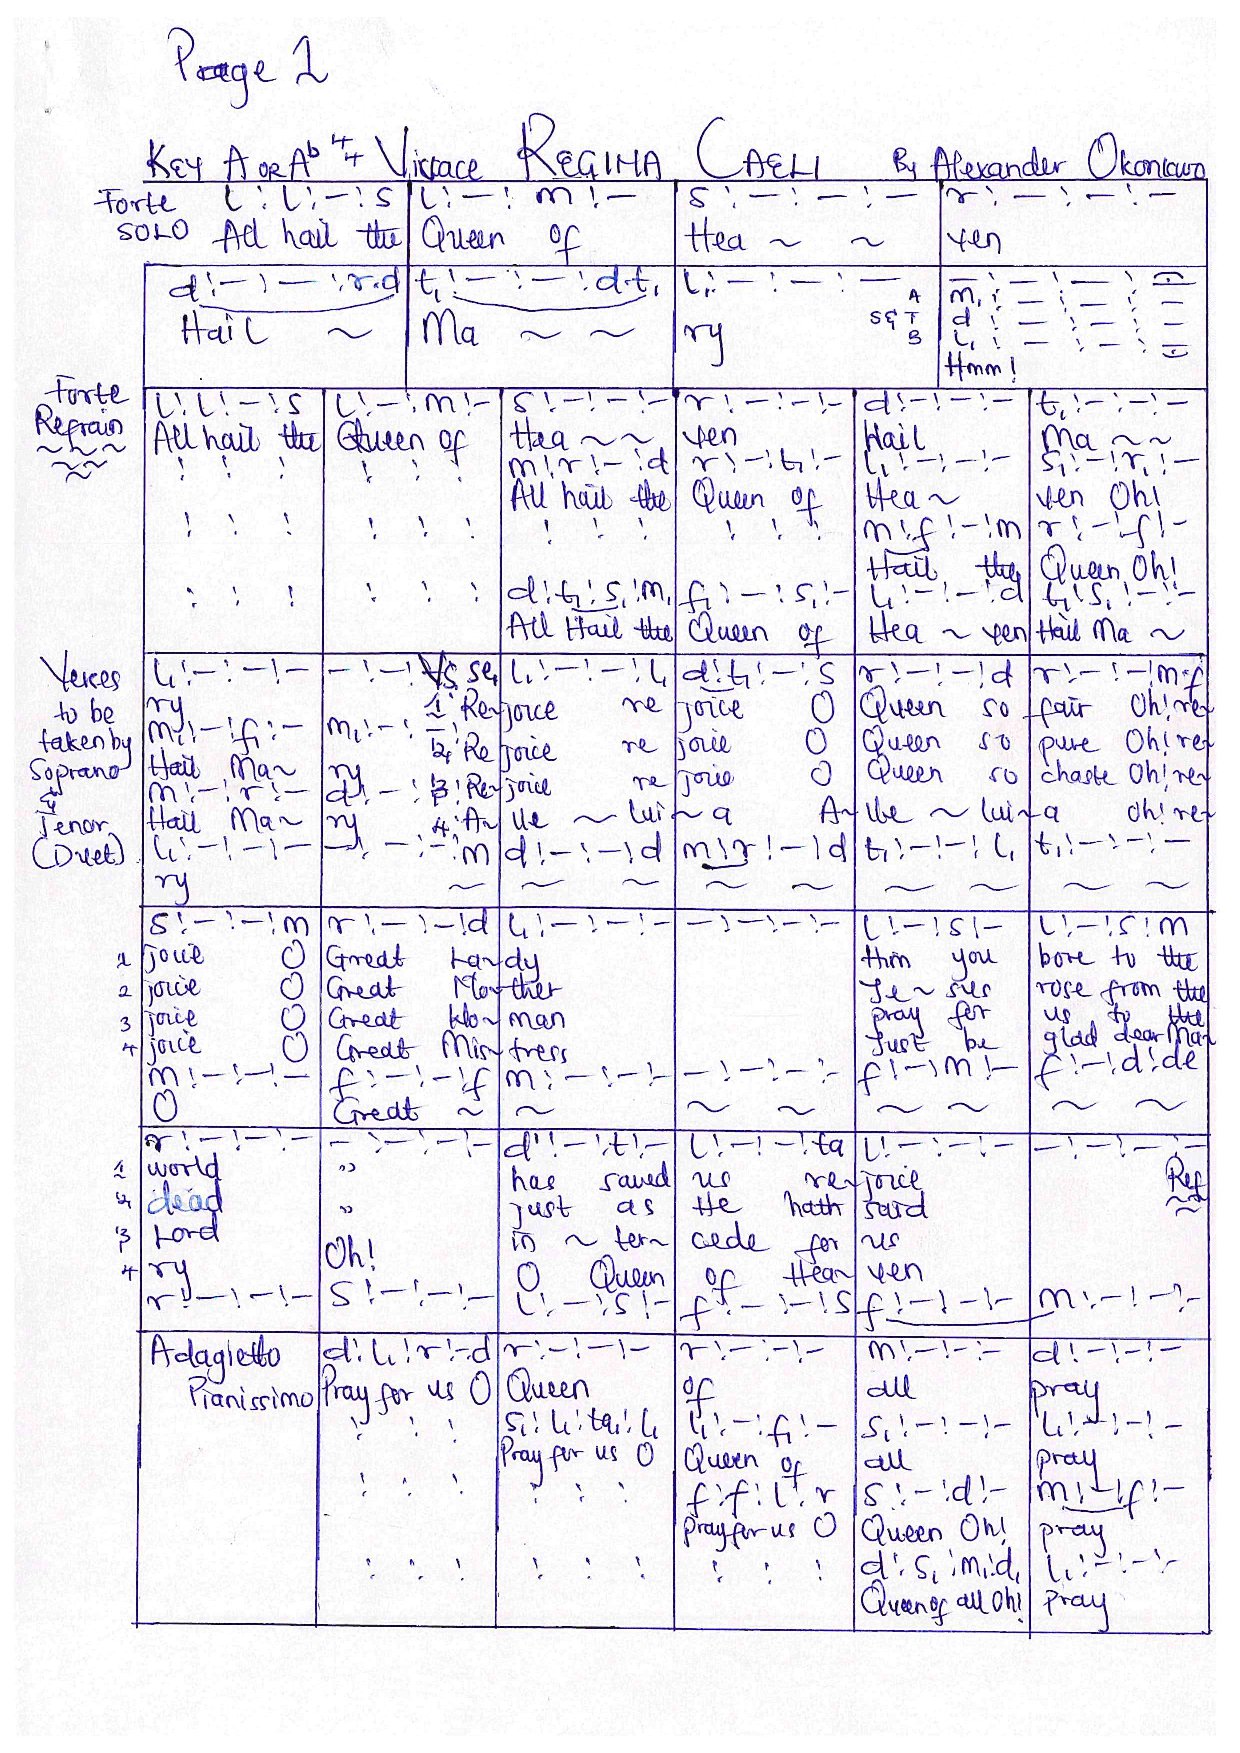 Page 1
KEY A OR Ab 4/4 Vivace REGINA CAELI By Alexander Okonkwo
Forte l : l : - : s | l : - : m : - | s : - : - : - | r : - : - : -
SOLO All hail the Queen of Hea ~ ~ ven
d : - : - : r.d | t₁ : - : - : d.t₁ | l₁ : - : - : - | - : - : - : -
A m₁ : - : - : -
S & T d : - : - : -
B l₁ : - : - : -
Hail ~ Ma ~ ~ ry Hmm!
Forte
Refrain
l : l : - : s | l : - : m : - | s : - : - : - | r : - : - : - | d : - : - : - | t₁ : - : - : -
All hail the Queen of Hea ~ ~ ven Hail Ma ~ ~
: : : | : : : | m : r : - : d | r : - : t₁ : - | l₁ : - : - : - | s₁ : - : r₁ : -
All hail the Queen of Hea ~ ven Oh!
: : : | : : : | : : : | : : : | m : f : - : m | r : - : f : -
Hail the Queen Oh!
: : : | : : : | d : t₁ : s₁ : m₁ | f₁ : - : s₁ : - | l₁ : - : - : d | t₁ : s₁ : - : -
All Hail the Queen of Hea ~ ven Hail Ma ~
Verces
to be
taken by
Soprano
&
Tenor
(Duet)
l₁ : - : - : - | - : - : Vs se₁ | l₁ : - : - : l₁ | d : t₁ : - : s | r : - : - : d | r : - : - : m.f
ry 1 Re~joice re joice O Queen so fair Oh! re~
m₁ : - : f₁ : - | m₁ : - :
2 Re joice re joice O Queen so pure Oh! re~
Hail Ma~ ry 3 Re~joice re joice O Queen so chaste Oh! re~
m : - : r : - | d : - :
Hail Ma~ ry 4 A~lle ~ lui ~ a A~lle ~ lui ~ a Oh! re~
l₁ : - : - : - | - : - : - : m | d : - : - : d | m : r : - : d | t₁ : - : - : l₁ | t₁ : - : - : -
ry ~ ~ ~ ~ ~ ~ ~ ~ ~
s : - : - : m | r : - : - : d | l₁ : - : - : - | - : - : - : - | l : - : s : - | l : - : s : m
1 joice O Great La~dy him you bore to the
2 joice O Great Mo~ther Je ~ sus rose from the
3 joice O Great Wo~man pray for us to the
4 joice O Great Mis~tress Just be glad dear Ma~
m : - : - : - | f : - : - : f | m : - : - : - | - : - : - : - | f : - : m : - | f : - : d : de
O Great ~ ~ ~ ~ ~ ~ ~ ~
r : - : - : - | - : - : - : - | d' : - : t : - | l : - : - : ta | l : - : - : - | - : - : - : -
1 world " has saved us re~joice Ref
2 dead " just as He hath said
3 Lord Oh! in ~ ter~ cede for us
4 ry O Queen of Hea~ ven
r : - : - : - | s : - : - : - | l : - : s : - | f : - : - : s | f : - : - : - | m : - : - : -
Adagietto d : l₁ : r : - : d | r : - : - : - | r : - : - : - | m : - : - : - | d : - : - : -
Pianissimo Pray for us O Queen of all pray
: : : | s₁ : l₁ : ta₁ : l₁ | l₁ : - : f₁ : - | s₁ : - : - : - | l₁ : - : - : -
Pray for us O Queen of all pray
: : : | : : : | f : f : l : r | s : - : d : - | m : - : f : -
Pray for us O Queen Oh! pray
: : : | : : : | : : : | d : s₁ : m₁ : d₁ | l₁ : - : - : -
Queen of all Oh! pray